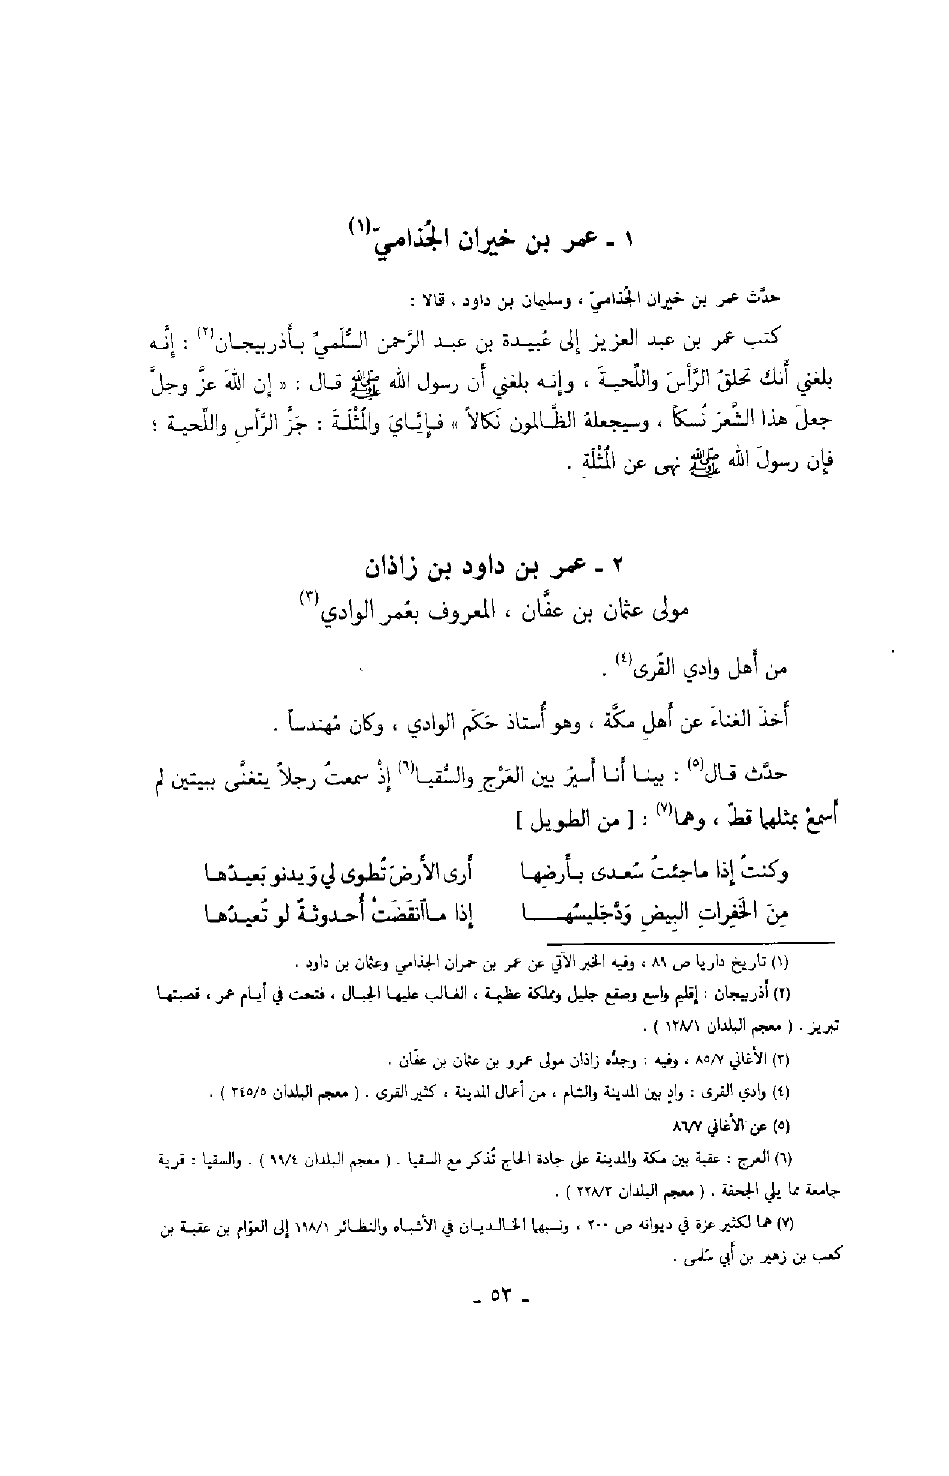 ١ ـ عمر بن خيران الجُذاميّ(١)
حدَّث عمر بن خيران الجُذاميّ ، وسليمان بن داود ، قالا :
كتب عمر بن عبد العزيز إلى عُبيدة بن عبد الرَّحمن السُّلَميّ بأذربيجان(٢) : إنَّه
بلغني أنك تحلقُ الرَّأسَ واللِّحيةَ ، وإنه بلغني أن رسول الله ﷺ قال : « إن الله عزَّ وجلَّ
جعلَ هذا الشَّعرَ نُسكاً ، وسيجعلهُ الظَّالمون نَكالاً » فإيَّايَ والمُثْلَةَ : جَزَّ الرَّأسِ واللِّحيةِ ؛
فإن رسولَ الله ﷺ نهى عن المُثْلَةِ .
٢ ـ عمر بن داود بن زاذان
مولى عثمان بن عفَّان ، المعروف بعُمر الوادي(٣)
من أهل وادي القُرى(٤) .
أخذَ الغناءَ عن أهلِ مكَّة ، وهو أُستاذ حَكَم الوادي ، وكان مُهندساً .
حدَّث قال(٥) : بينا أنا أسيرُ بين العَرْجِ والسُّقيا(٦) إذْ سمعتُ رجلاً يتغنَّى ببيتين لم
أسمعْ بمثلهما قطّ ، وهما(٧) : [ من الطويل ]
وكنتُ إذا ماجئتُ سُعدى بأرضِها أرى الأرضَ تُطوى لي ويَدنو بَعيدُها
مِنَ الخَفِراتِ البيضِ وَدَّ جَليسُهـا إذا مـاٱنقَضَتْ أُحدوثـةٌ لو تُعيدُهـا
(١) تاريخ داريا ص ٨٩ ، وفيه الخبر الآتي عن عمر بن حمران الجذامي وعثمان بن داود .
(٢) أذربيجان : إقليم واسع وصقع جليل ومملكة عظيمة ، الغالب عليها الجبال ، فتحت في أيام عمر ، قصبتها
تبريز . ( معجم البلدان ١٢٨/١ ) .
(٣) الأغاني ٨٥/٧ ، وفيه : وجدُّه زاذان مولى عمرو بن عثمان بن عفّان .
(٤) وادي القرى : وادٍ بين المدينة والشام ، من أعمال المدينة ، كثير القرى . ( معجم البلدان ٣٤٥/٥ ) .
(٥) عن الأغاني ٨٦/٧
(٦) العرج : عقبة بين مكة والمدينة على جادة الحاج تُذكر مع السقيا . ( معجم البلدان ٩٩/٤ ) . والسقيا : قرية
جامعة مما يلي الجحفة . ( معجم البلدان ٢٢٨/٣ ) .
(٧) هما لكثير عزة في ديوانه ص ٢٠٠ ، ونسبها الخالديان في الأشباه والنظائر ١٩٨/١ إلى العوّام بن عقبة بن
كعب بن زهير بن أبي سُلمى .
ـ ٥٣ ـ